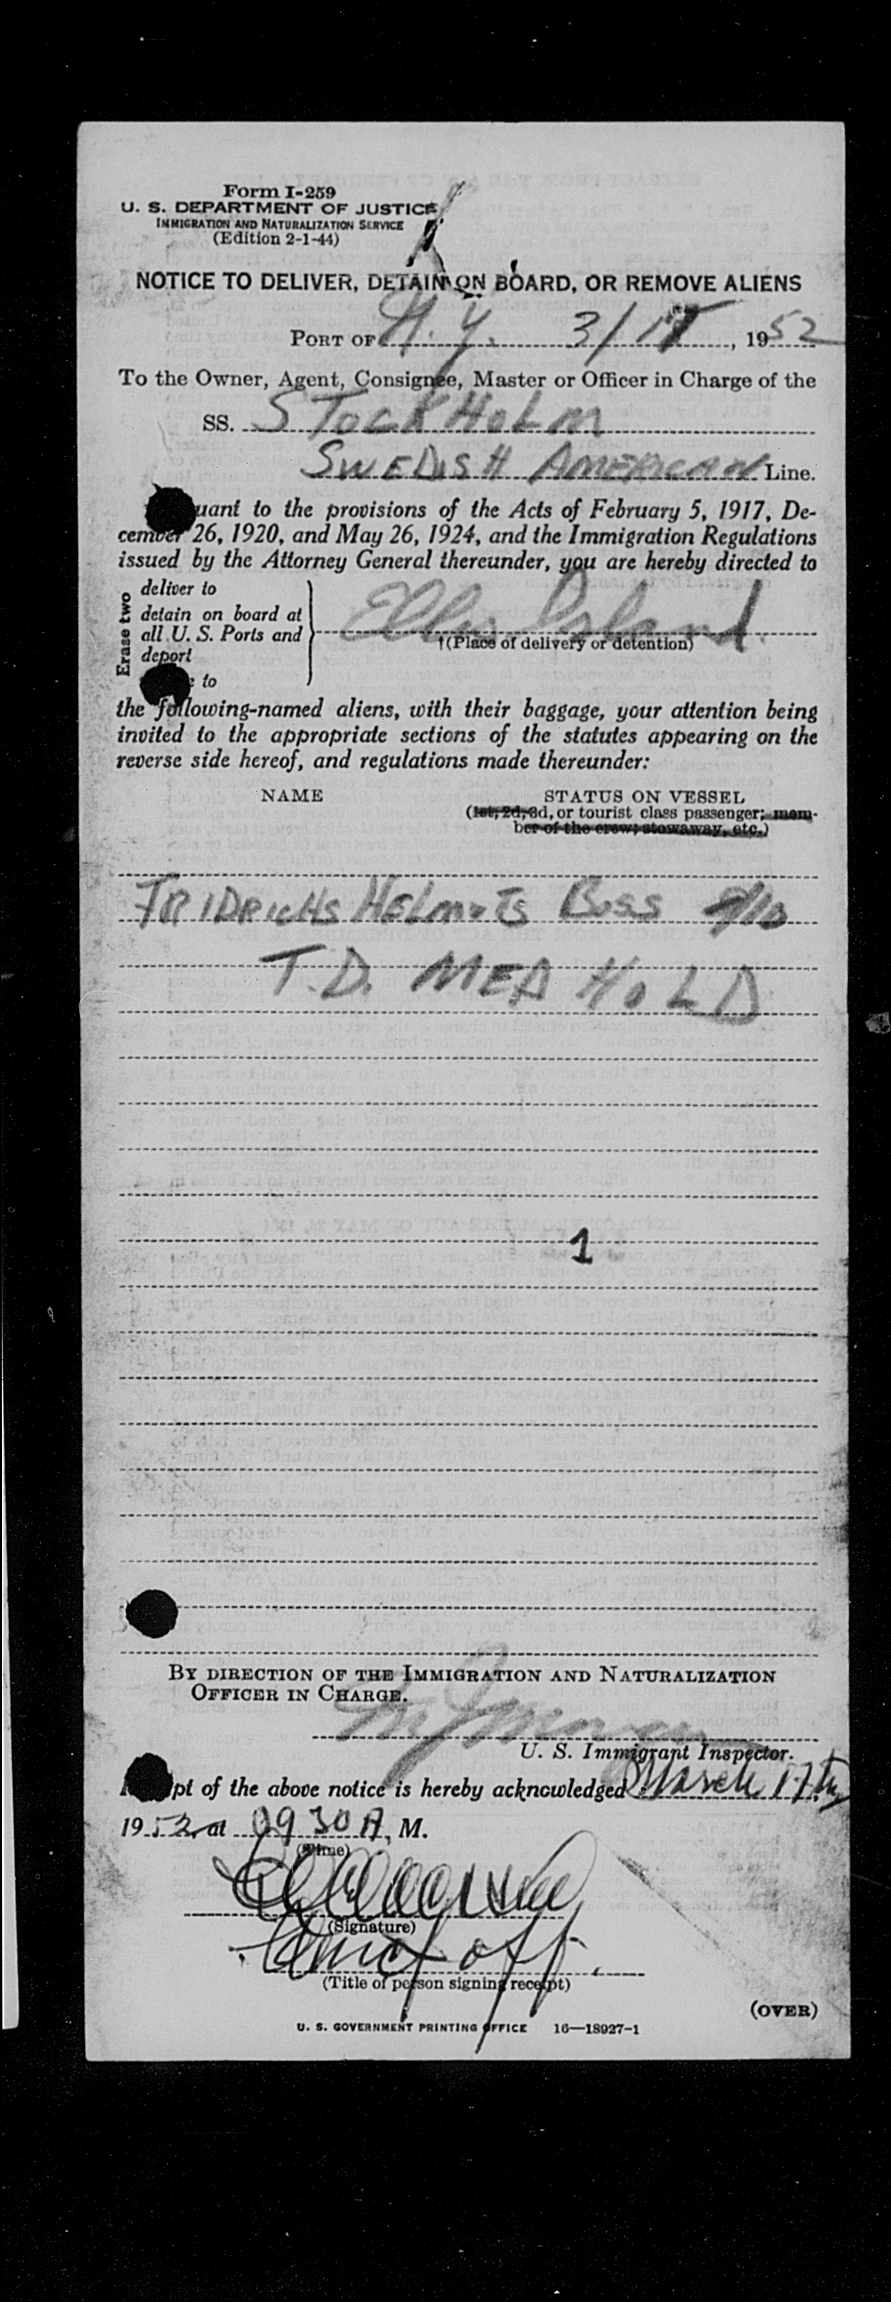 Form I-259
U. S. DEPARTMENT OF JUSTICE
IMMIGRATION AND NATURALIZATION SERVICE
(Edition 2-1-44)
NOTICE TO DELIVER, DETAIN ON BOARD, OR REMOVE ALIENS
PORT OF N. Y. 3/17, 1952
To the Owner, Agent, Consignee, Master or Officer in Charge of the
SS. STOCKHOLM
SWEDISH AMERICAN Line.
uant to the provisions of the Acts of February 5, 1917, De-
cember 26, 1920, and May 26, 1924, and the Immigration Regulations
issued by the Attorney General thereunder, you are hereby directed to
Erase two
deliver to
detain on board at
all U. S. Ports and
deport
to
Ellis Island
†(Place of delivery or detention)
the following-named aliens, with their baggage, your attention being
invited to the appropriate sections of the statutes appearing on the
reverse side hereof, and regulations made thereunder:
NAME STATUS ON VESSEL
(1st, 2d, 3d, or tourist class passenger; mem-
ber of the crew; stowaway, etc.)
FRIDRICHS HELMUTS BUSS
T.D. MED HOLD
1
BY DIRECTION OF THE IMMIGRATION AND NATURALIZATION
OFFICER IN CHARGE.
U. S. Immigrant Inspector.
pt of the above notice is hereby acknowledged March 17th
1952 at 0930 A, M.
(Time)
(Signature)
off.
(Title of person signing receipt)
(OVER)
U. S. GOVERNMENT PRINTING OFFICE 16—18927-1